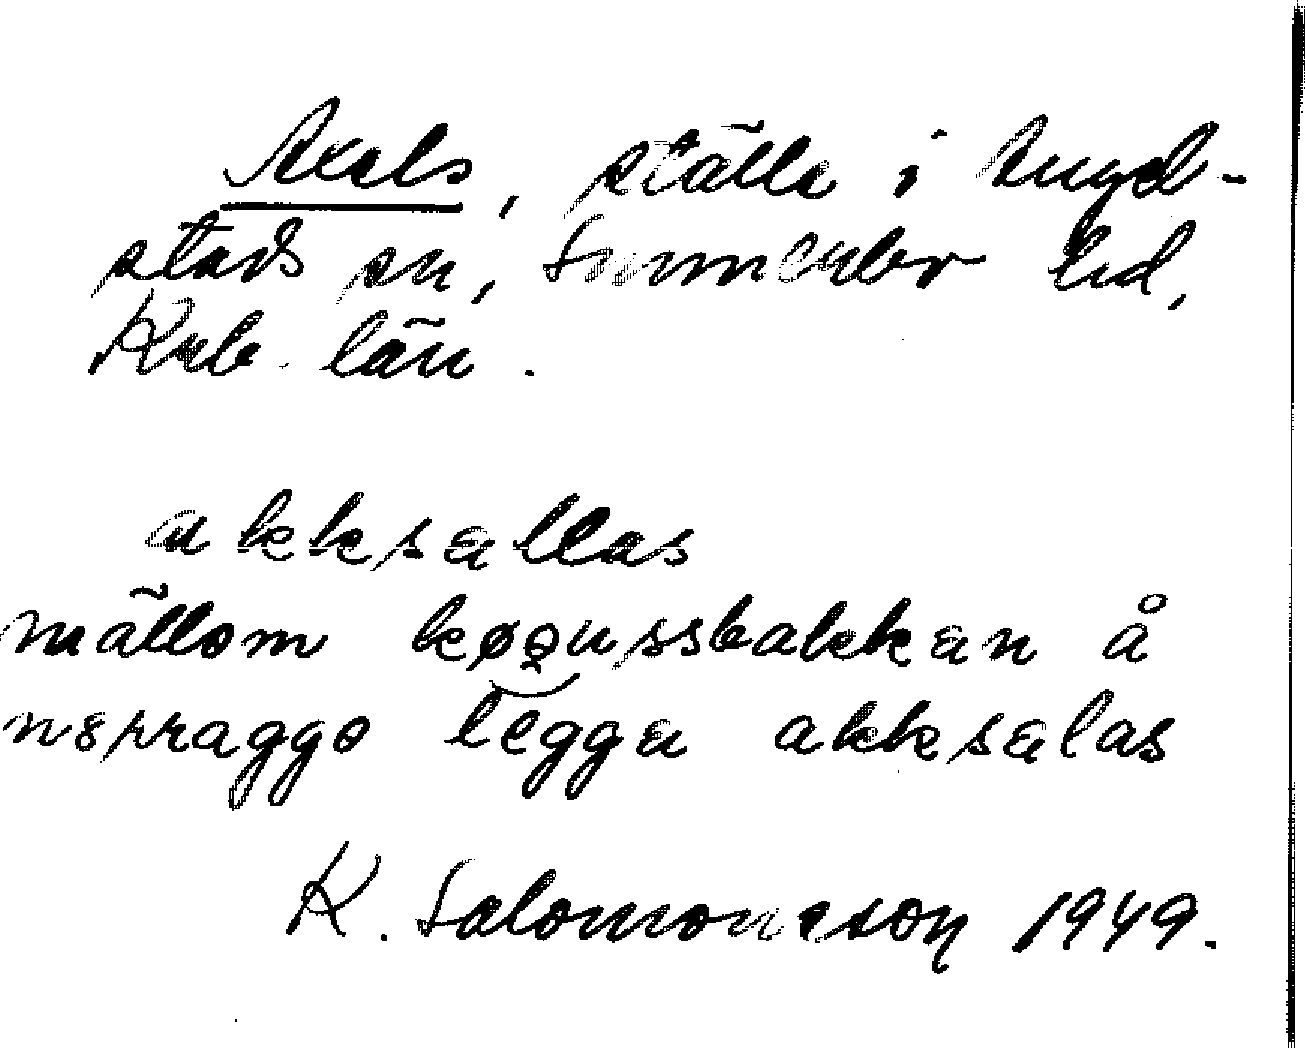 Axels, ställe i Angel-
stads sn, Sunnerbo hd,
Krb. län.
akksallas
mällom køgussbakkan å
nspraggo legga akksalas
K. Salomonsson 1949.